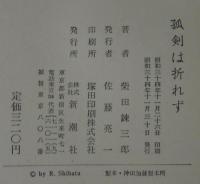 孤剣は折れず
昭和三十四年十一月二十六日 印刷
昭和三十四年十一月三十日 発行
著者 柴田錬三郎
発行者 佐藤亮一
印刷所 塚田印刷株式会社
発行所 株式会社 新潮社
東京都新宿区矢来町七一
振替東京八〇八番
定価三二〇円
© by R. Shibata
製本・神田加藤製本所